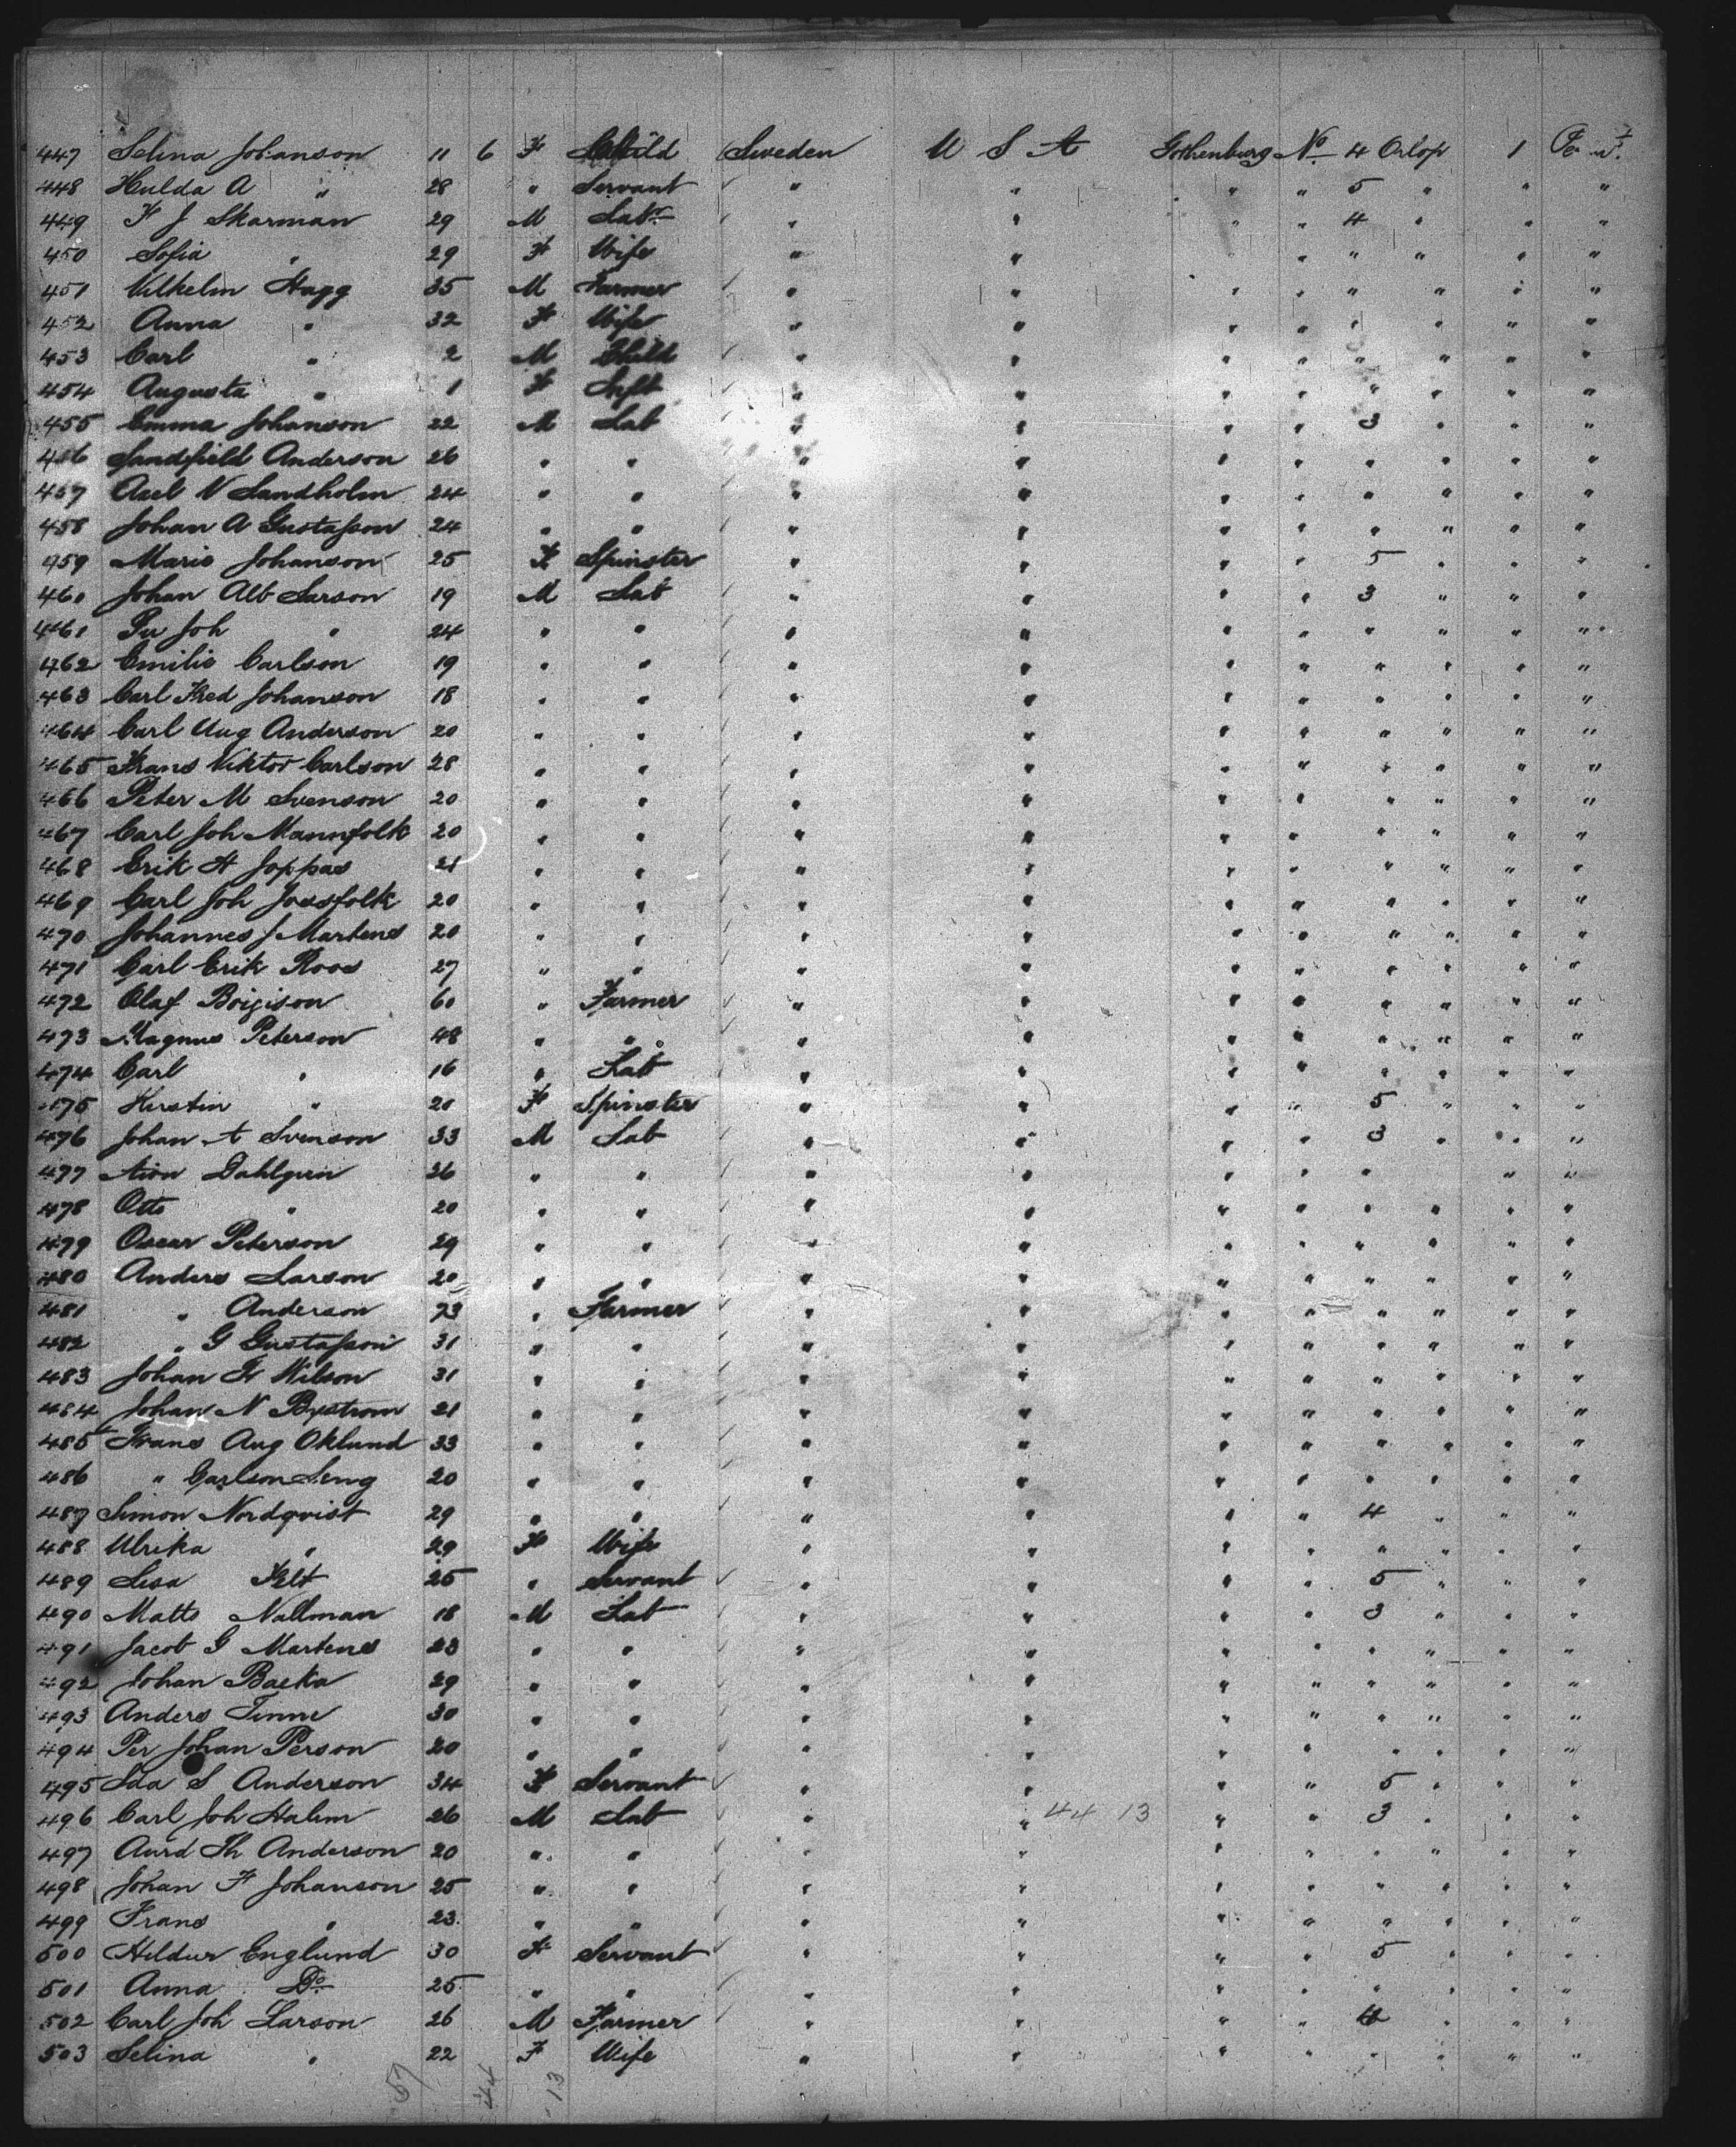 447 Selma Johanson 11 6 F Child Sweden U S A Gothenburg No 4 Orlop 1 Pr mt
448 Hulda A " 28 " Servant " " " " 5 " " "
449 F J Skarman 29 M Labr " " " " 4 " " "
450 Sofia " 29 F Wife " " " " " " "
451 Vilhelm Hagg 35 M Farmer " " " " " " " "
452 Anna " 32 F Wife " " " " " " " "
453 Carl " 2 M Child " " " " " " " "
454 Augusta " 1 F " " " " " " " "
455 Emma Johanson 22 M Lab " " " " 3 " " "
456 Sandfield Anderson 26 " " " " " " " " " "
457 Axel V Sandholm 24 " " " " " " " " " "
458 Johan A Gustafson 24 " " " " " " " " " "
459 Marie Johanson 25 F Spinster " " " " 5 " " "
460 Johan Alb Larson 19 M Lab " " " " 3 " " "
461 Joh " 24 " " " " " " " " " "
462 Emilie Carlson 19 " " " " " " " " " "
463 Carl Fred Johanson 18 " " " " " " " " " "
464 Carl Aug Anderson 20 " " " " " " " " " "
465 Frans Viktor Carlson 28 " " " " " " " " " "
466 Peter M Svenson 20 " " " " " " " " " "
467 Carl Joh Mannfolk 20 " " " " " " " " " "
468 Erik H Joppas 21 " " " " " " " " " "
469 Carl Joh Jossfolk 20 " " " " " " " " " "
470 Johannes J Martens 20 " " " " " " " " " "
471 Carl Erik Roos 27 " " " " " " " " " "
472 Olaf 60 " Farmer " " " " " " " "
473 Magnus Peterson 48 " " " " " " " " " "
474 Carl " 16 " Lab " " " " " " " "
475 Kirstin " 20 F Spinster " " " " 5 " " "
476 Johan A Svenson 33 M Lab " " " " 3 " " "
477 Dahlgren 26 " " " " " " " " "
478 Otto " 20 " " " " " " " " " "
479 Oscar Peterson 29 " " " " " " " " " "
480 Anders Larson 20 " " " " " " " " " "
481 " Anderson 73 " Farmer " " " " " " " "
482 " G Gustafson 31 " " " " " " " " " "
483 Johan Fr Nilson 31 " " " " " " " " " "
484 Johan N Bystrom 21 " " " " " " " " " "
485 Frans Aug Oklund 33 " " " " " " " " " "
486 " Carlson Leng 20 " " " " " " " " " "
487 Simon Nordqvist 29 " " " " " " 4 " " "
488 Ulrika " 29 F Wife " " " " " " " "
489 Lisa Felt 25 " Servant " " " " 5 " " "
490 Matts Nallman 18 M Lab " " " " 3 " " "
491 Jacob G Martens 23 " " " " " " " " " "
492 Johan Backa 29 " " " " " " " " " "
493 Anders Finne 30 " " " " " " " " " "
494 Per Johan Person 20 " " " " " " " " " "
495 Ida S Anderson 34 F Servant " " " " 5 " " "
496 Carl Joh Halim 26 M Lab " " 44 13 " " 3 " " "
497 Th Anderson 20 " " " " " " " " " "
498 Johan F Johanson 25 " " " " " " " " " "
499 Frans " 23 " " " " " " " " " "
500 Hildur Englund 30 F Servant " " " " 5 " " "
501 Anna Do 25 " " " " " " " " " "
502 Carl Joh Larson 26 M Farmer " " " " 4 " " "
503 Selina " 22 F Wife " " " " " " " "
57 44 13